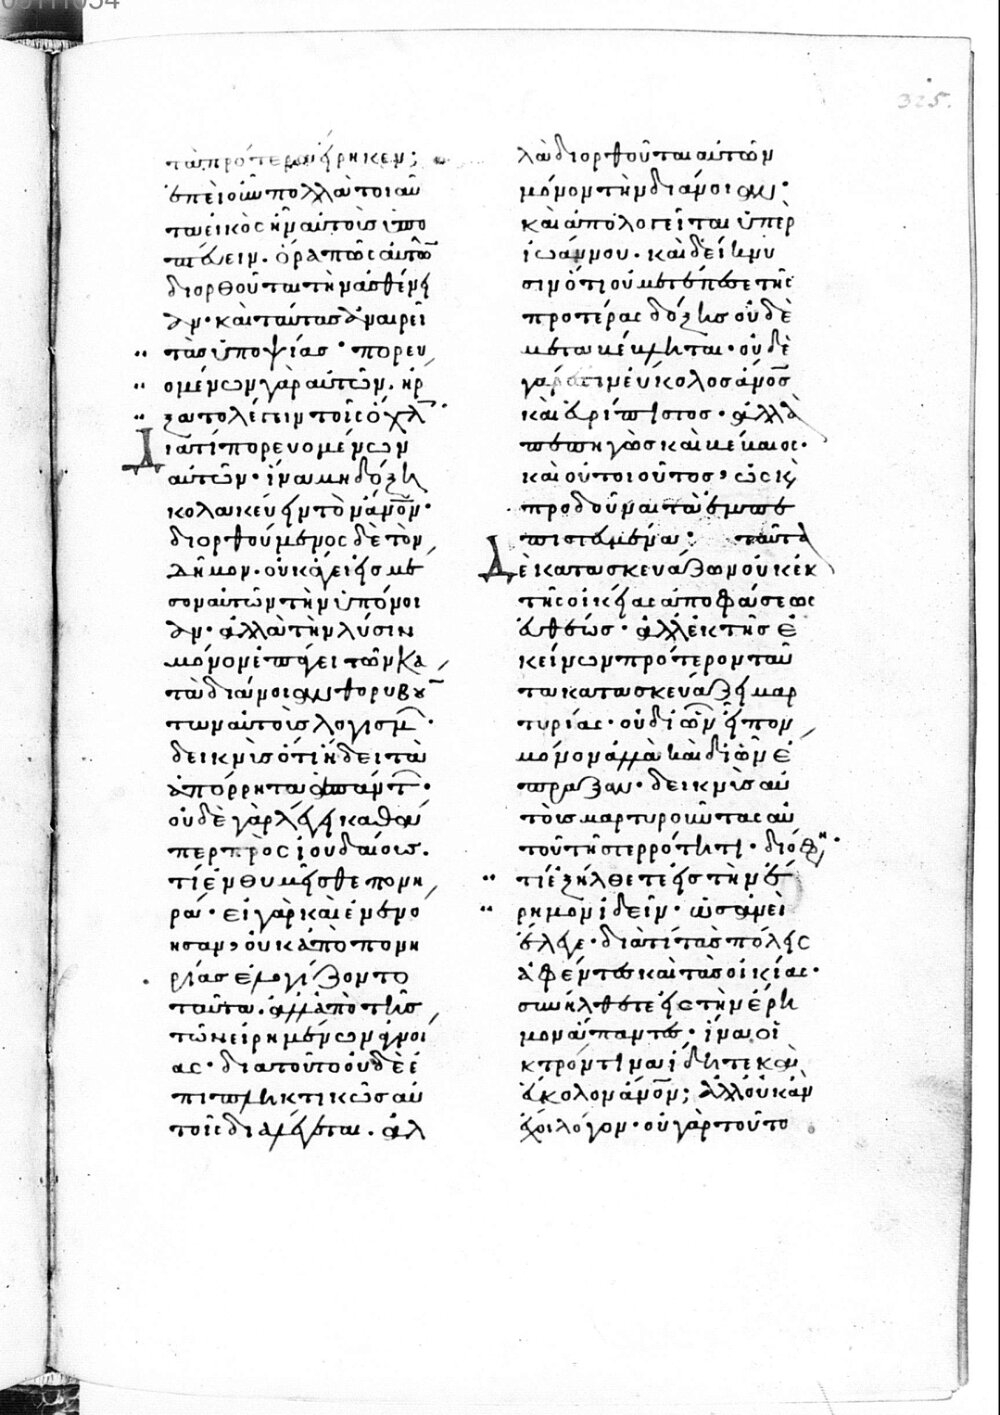 325.
τὰ πρότερα εἴρηκεν;
ἐπεὶ οὖν πολλὰ τοιαῦ
τα εἰκὸς ἦν αὐτοὺς ὑπο
πτεύειν. ὅρα πῶς αὐτῶν
διορθοῦται τὴν ἀσθένει
αν· καὶ ταύτας ἀναιρεῖ
τὰς ὑποψίας· πορευ
ομένων γὰρ αὐτῶν. ἤρ
ξατο λέγειν τοῖς ὄχλοις·
Διατί πορευομένων
αὐτῶν· ἵνα μὴ δόξη
κολακεύειν τὸν ἄνον·
διορθούμενος δὲ τὸν
δῆμον· οὐκ ἄγει εἰς μέ
σον αὐτῶν τὴν ὑπόνοι
αν· ἀλλὰ τὴν λύσιν
μόνον ἐπάγει τῶν κα
τὰ διάνοιαν θορυβού
των αὐτοὺς λογισμῶν·
δεικνὺς ὅτι ἤδει τὰ
ἀπόρρητα ἁπάντων·
οὐδὲ γὰρ λέγει καθά
περ πρὸς ἰουδαίους.
τί ἐνθυμεῖσθε πονη
ρά· εἰ γὰρ καὶ ἐνενό
ησαν, οὐκ ἀπὸ πονη
ρίας ἐλογίζοντο
ταῦτα. ἀλλὰ ἀπὸ τῆς
τῶν εἰρημένων ἀγνοί
ας· διὰ τοῦτο οὐδὲ ἐ
πιπληκτικῶς αὐ
τοῖς διαλέγεται. ἀλ
λὰ διορθοῦται αὐτῶν
μόνον τὴν διάνοιαν·
καὶ ἀπολογεῖται ὑπὲρ
ἰωάννου· καὶ δείκνυ
σιν ὅτι οὐ μετέπεσε τῆς
προτέρας δόξης οὐδὲ
μετακέκληται· οὐδὲ
γάρ ἐστιν εὔκολος ἄνος
καὶ εὐρίπιστος· ἀλλὰ
πεπηγὼς καὶ βέβαιος·
καὶ οὐ τοιοῦτος, ὡς καὶ
προδοῦναι τὰ ἐμπε
πιστευμένα: ταῦτα
Δὲ κατασκευάζων οὐκ ἐκ
τῆς οἰκείας ἀποφάσεως
εὐθέως· ἀλλ' ἐκ τῆς ἐ
κείνων πρότερον ταῦ
τα κατασκευάζει μαρ
τυρίας· οὐ δι' ὧν εἶπον
μόνον ἀλλὰ καὶ δι' ὧν ἔ
πραξαν· δεικνὺς αὐ
τοὺς μαρτυροῦντας αὐ
τοῦ τῆ στερρότητι· διό φη·
τί ἐξήλθετε εἰς τὴν ἔ
ρημον ἰδεῖν· ὡσανεὶ
ἔλεγε· διατί τὰς πόλεις
ἀφέντες καὶ τὰς οἰκίας·
συνήλθετε εἰς τὴν ἔρη
μον ἅπαντες· ἵνα οἰ
κτρόν τινα ἴδητε καὶ
εὔκολον ἄνον; ἀλλ' οὐκ ἂν
ἔχοι λόγον· οὐ γὰρ τοῦτο